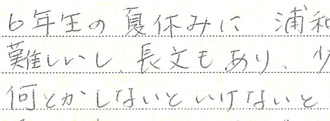 6年生の夏休みに 浦和
難しいし、長文もあり、少
何とかしないといけないと